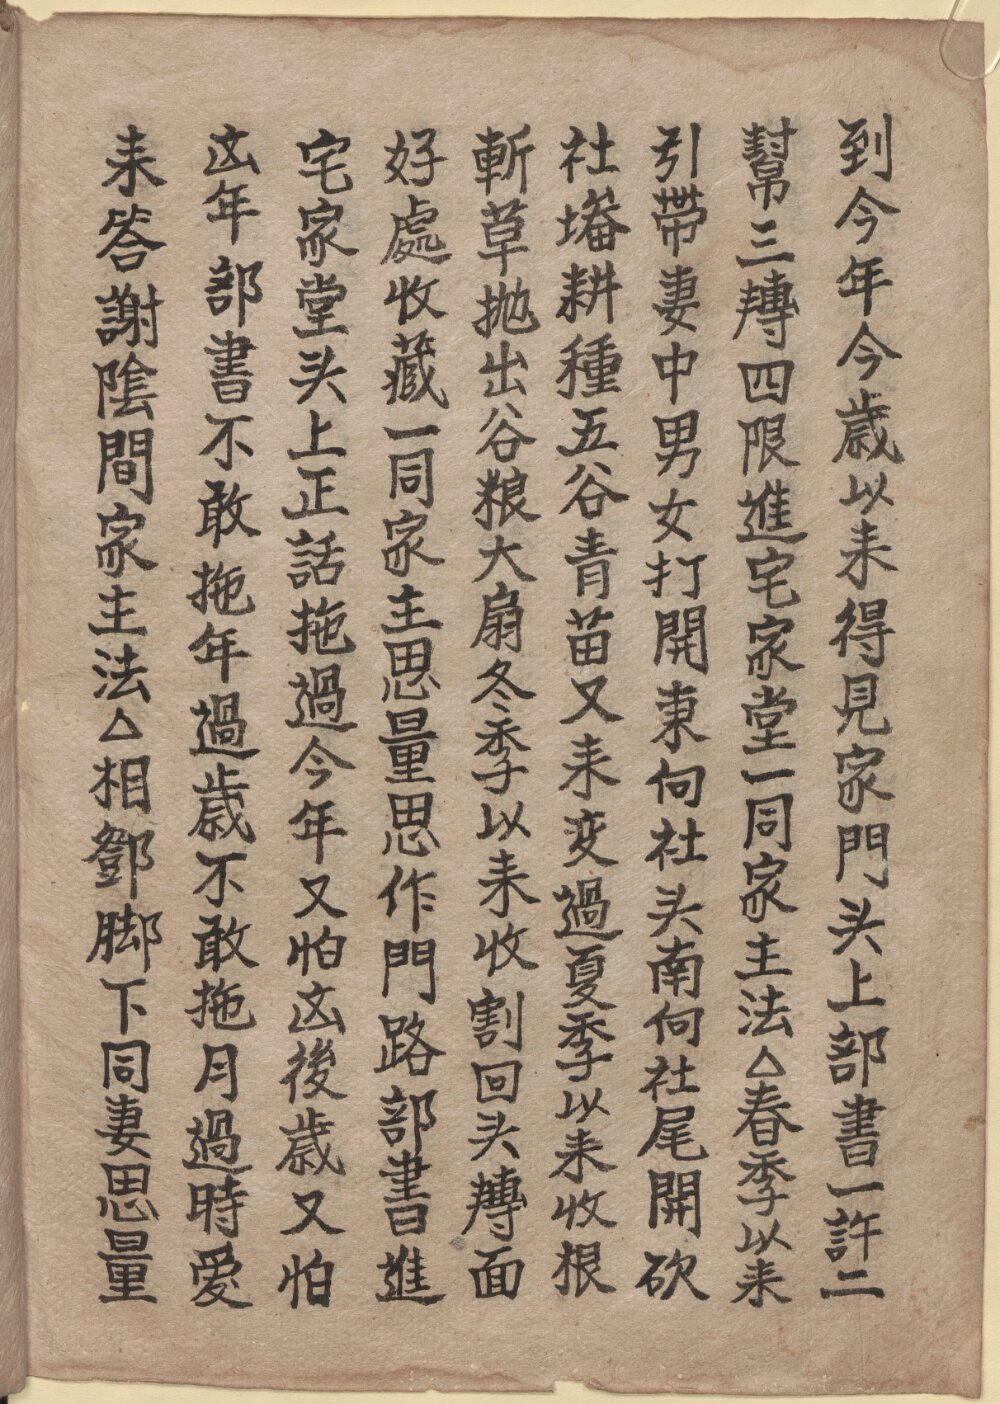 到今年今歳以耒得見家門头上部書一許二
幫三轉四限進宅家堂一同家主法△春季以耒
引帶妻中男女打開東向社头南向社尾開砍
社墦耕種五谷青苗又耒变過夏季以耒收根
斬草抛出谷粮大扇冬季以耒收割回头轉面
好處收藏一同家主思量思作門路部書進
宅家堂头上正話拖過今年又怕凶後歳又怕
凶年部書不敢拖年過歳不敢拖月過時愛
耒答謝陰間家主法△相鄧脚下同妻思量